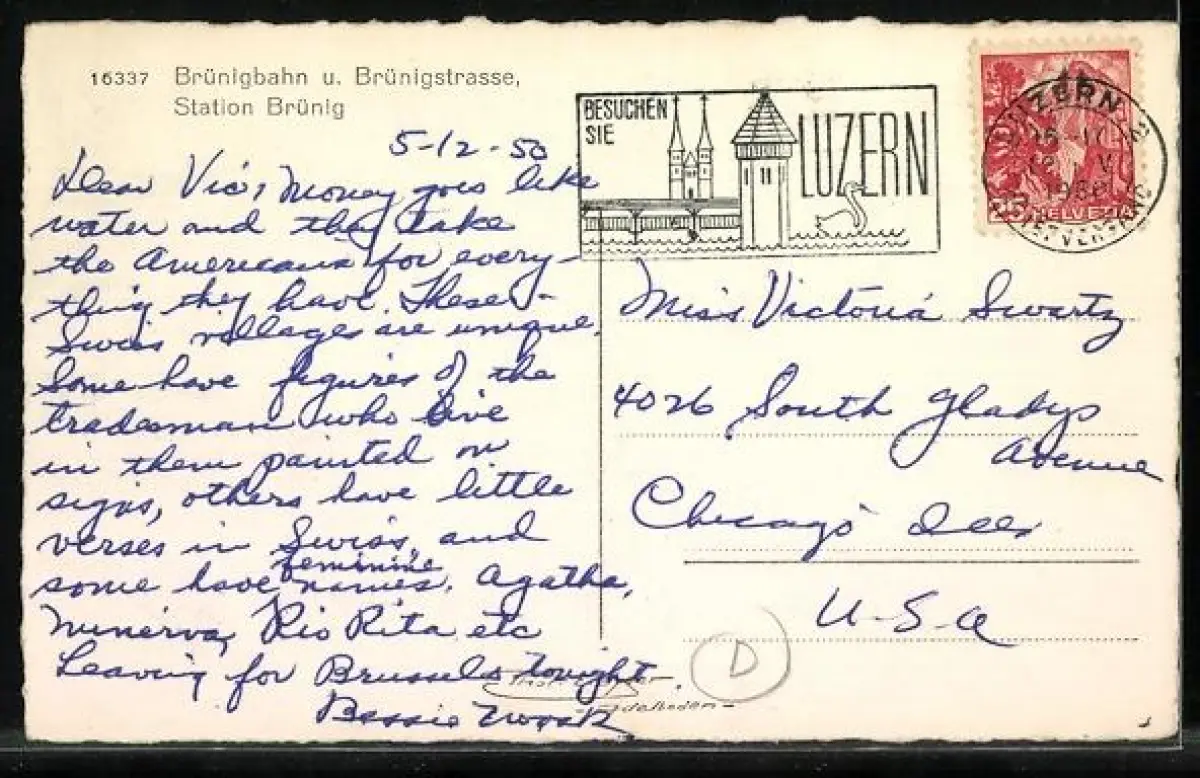 16337 Brünigbahn u. Brünigstrasse,
Station Brünig
5-12-50
Dear Vic, Money goes like
water and they take
the Americans for every-
thing they have. These
Swiss villages are unique.
Some have figures of the
tradesman who live
in them painted on
signs, others have little
verses in Swiss, and
feminine
some have names. Agatha,
Minerva, Rio Rita etc
Leaving for Brussels tonight.
Bessie
BESUCHEN
SIE
LUZERN
LUZERN 2
1950
25 HELVETIA
Miss Victoria Swartz
4026 South Gladys
Avenue
Chicago Ill
U-S-A
D